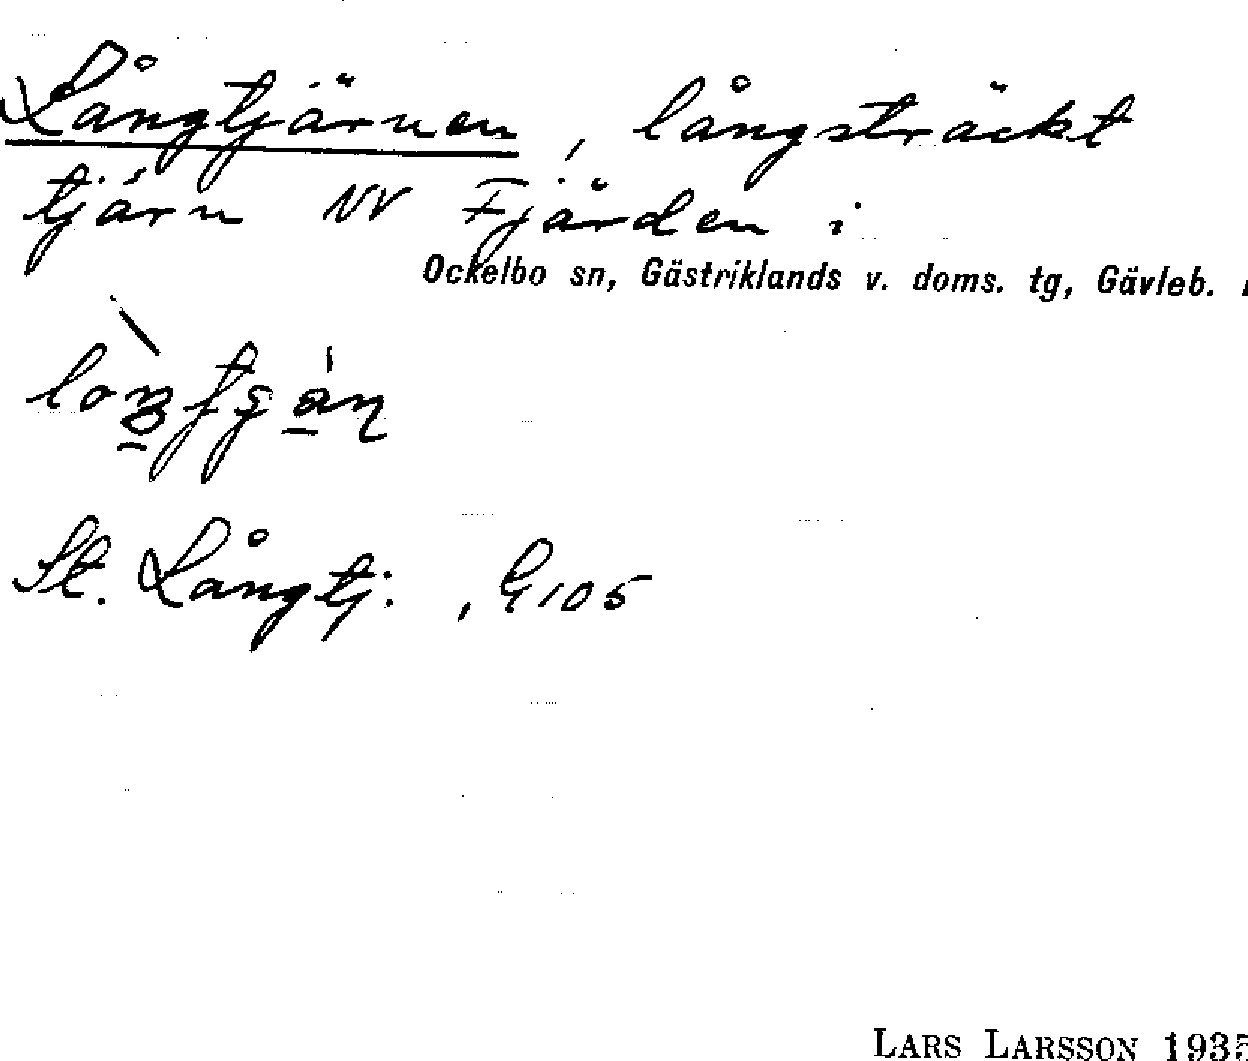 Långtjärnen, långsträckt
tjärn NV Fjärden i
Ockelbo sn, Gästriklands v. doms. tg, Gävleb.
St. Långtj., G105
LARS LARSSON 1935